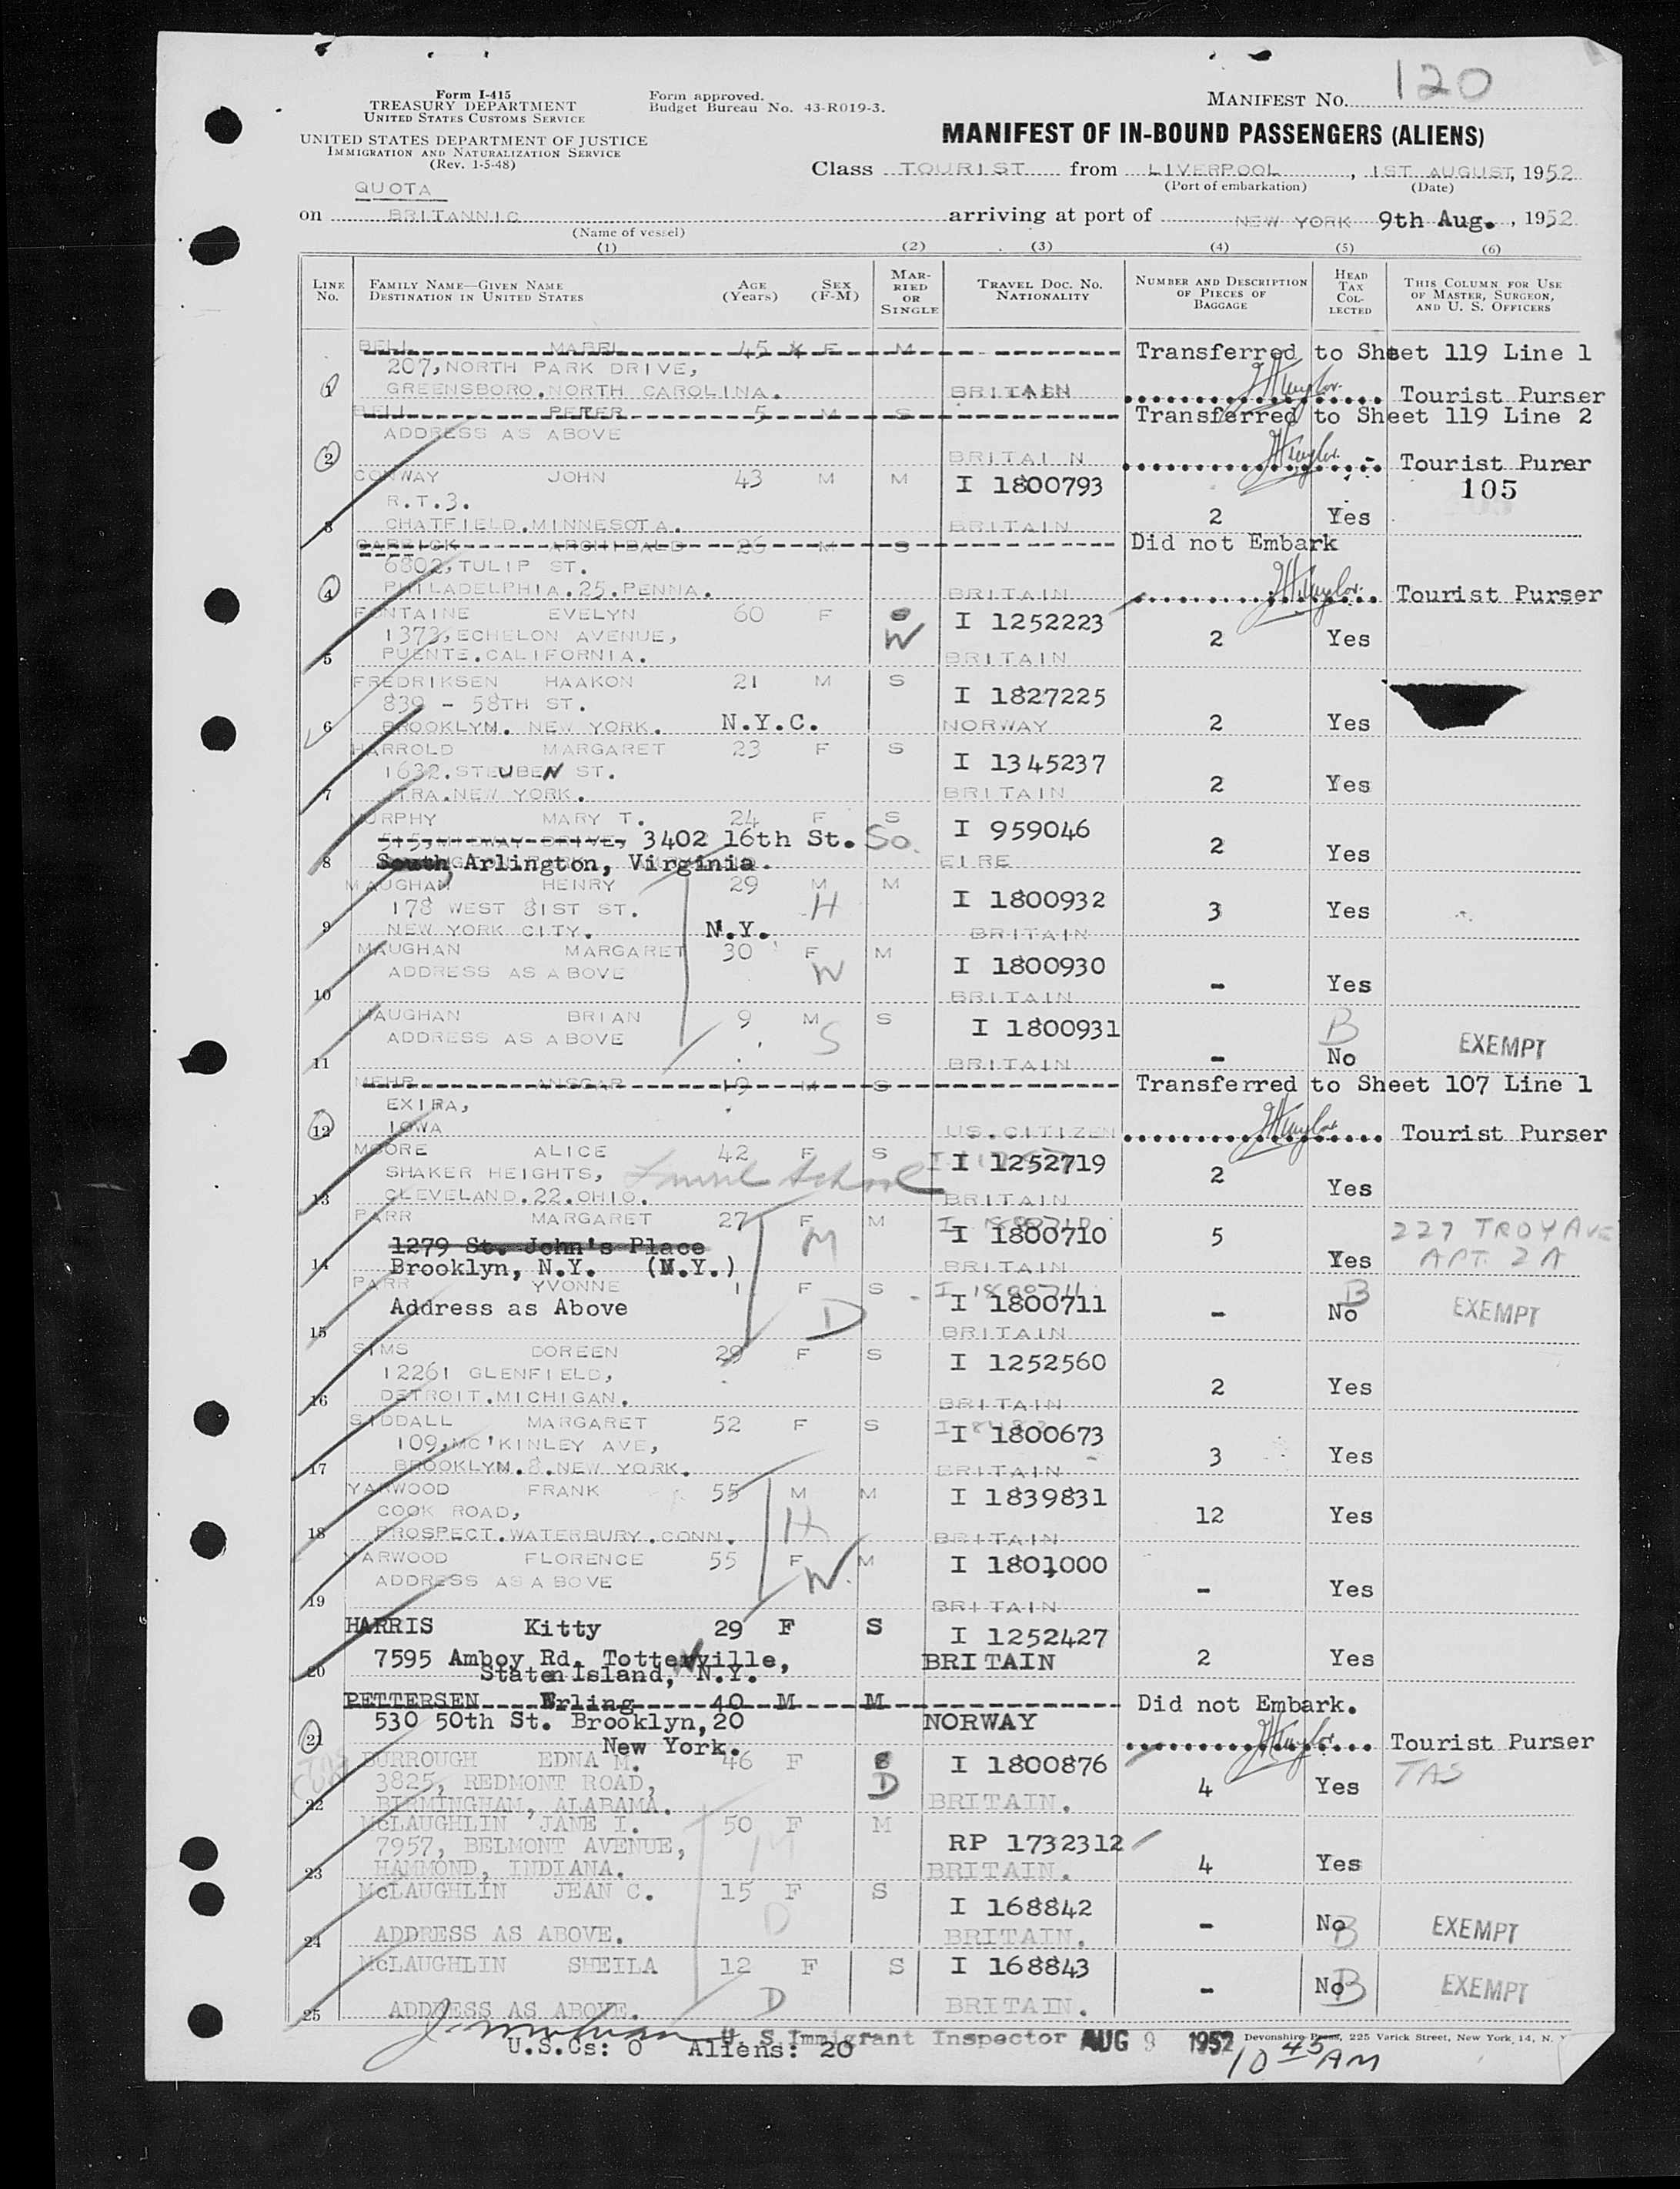 120
Form I-415
TREASURY DEPARTMENT
UNITED STATES CUSTOMS SERVICE
Form approved.
Budget Bureau No. 43-R019-3.
MANIFEST NO.
UNITED STATES DEPARTMENT OF JUSTICE
IMMIGRATION AND NATURALIZATION SERVICE
(Rev. 1-5-48)
MANIFEST OF IN-BOUND PASSENGERS (ALIENS)
Class TOURIST from LIVERPOOL, 1ST AUGUST, 1952
(Port of embarkation) (Date)
QUOTA
on BRITANNIC arriving at port of NEW YORK 9th Aug., 1952
(Name of vessel)
(1) (2) (3) (4) (5) (6)
LINE NO. FAMILY NAME—GIVEN NAME DESTINATION IN UNITED STATES AGE (Years) SEX (F-M) MARRIED OR SINGLE TRAVEL DOC. NO. NATIONALITY NUMBER AND DESCRIPTION OF PIECES OF BAGGAGE HEAD TAX COLLECTED THIS COLUMN FOR USE OF MASTER, SURGEON, AND U. S. OFFICERS
BELL MABEL 45 F M Transferred to Sheet 119 Line 1
207, NORTH PARK DRIVE,
1 GREENSBORO. NORTH CAROLINA. BRITAIN Tourist Purser
BELL PETER 5 M S Transferred to Sheet 119 Line 2
ADDRESS AS ABOVE
2 BRITAIN Tourist Purer
CONWAY JOHN 43 M M I 1800793 105
R.T.3.
3 CHATFIELD. MINNESOTA. BRITAIN 2 Yes
CARRICK ARCHIBALD 26 M S Did not Embark
6802, TULIP ST.
4 PHILADELPHIA. 25. PENNA. BRITAIN Tourist Purser
FONTAINE EVELYN 60 F S I 1252223
1373, ECHELON AVENUE, W 2 Yes
5 PUENTE. CALIFORNIA. BRITAIN
FREDRIKSEN HAAKON 21 M S I 1827225
839 - 58TH ST.
6 BROOKLYN. NEW YORK. N.Y.C. NORWAY 2 Yes
HARROLD MARGARET 23 F S I 1345237
1632. STEUBEN ST. 2 Yes
7 UTRA. NEW YORK. BRITAIN
MURPHY MARY T. 24 F S I 959046
515, MIDWAY DRIVE, 3402 16th St. So. 2 Yes
8 South Arlington, Virginia. EIRE
MAUGHAN HENRY 29 M M I 1800932
178 WEST 81ST ST. H 3 Yes
9 NEW YORK CITY. N.Y. BRITAIN
MAUGHAN MARGARET 30 F M I 1800930
ADDRESS AS ABOVE W - Yes
10 BRITAIN
MAUGHAN BRIAN 9 M S I 1800931 B
ADDRESS AS ABOVE S - No EXEMPT
11 BRITAIN
MEHR ANSGAR 19 M S Transferred to Sheet 107 Line 1
EXIRA,
12 IOWA US. CITIZEN Tourist Purser
MOORE ALICE 42 F S I 1252719
SHAKER HEIGHTS, School 2 Yes
13 CLEVELAND. 22. OHIO. BRITAIN
PARR MARGARET 27 F M I 1800710 5 227 TROY AVE
1279 St. John's Place M Yes APT. 2A
14 Brooklyn, N.Y. (N.Y.) BRITAIN
PARR YVONNE 1 F S I 1800711 B
Address as Above D - No EXEMPT
15 BRITAIN
SIMS DOREEN 29 F S I 1252560
12261 GLENFIELD, 2 Yes
16 DETROIT. MICHIGAN. BRITAIN
SIDDALL MARGARET 52 F S I 1800673
109, MC'KINLEY AVE, 3 Yes
17 BROOKLYN. 8. NEW YORK. BRITAIN
YARWOOD FRANK 55 M M I 1839831
COOK ROAD, H 12 Yes
18 PROSPECT. WATERBURY. CONN. BRITAIN
YARWOOD FLORENCE 55 F M I 1801000
ADDRESS AS ABOVE W. - Yes
19 BRITAIN
HARRIS Kitty 29 F S I 1252427
7595 Amboy Rd. Tottenville, BRITAIN 2 Yes
20 Staten Island, N.Y.
PETTERSEN Erling 40 M M Did not Embark.
530 50th St. Brooklyn, 20 NORWAY
21 New York. Tourist Purser
BURROUGH EDNA M. 46 F S I 1800876 TAS
3825, REDMONT ROAD, D 4 Yes
22 BIRMINGHAM, ALABAMA. BRITAIN.
McLAUGHLIN JANE I. 50 F M RP 1732312
7957, BELMONT AVENUE, M 4 Yes
23 HAMMOND, INDIANA. BRITAIN.
McLAUGHLIN JEAN C. 15 F S I 168842
D - No B EXEMPT
24 ADDRESS AS ABOVE. BRITAIN.
McLAUGHLIN SHEILA 12 F S I 168843
D - No B EXEMPT
25 ADDRESS AS ABOVE. BRITAIN.
U. S. Immigrant Inspector AUG 9 1952 Devonshire Press, 225 Varick Street, New York, 14, N. Y
U.S.Cs: 0 Aliens: 20 10 45 AM